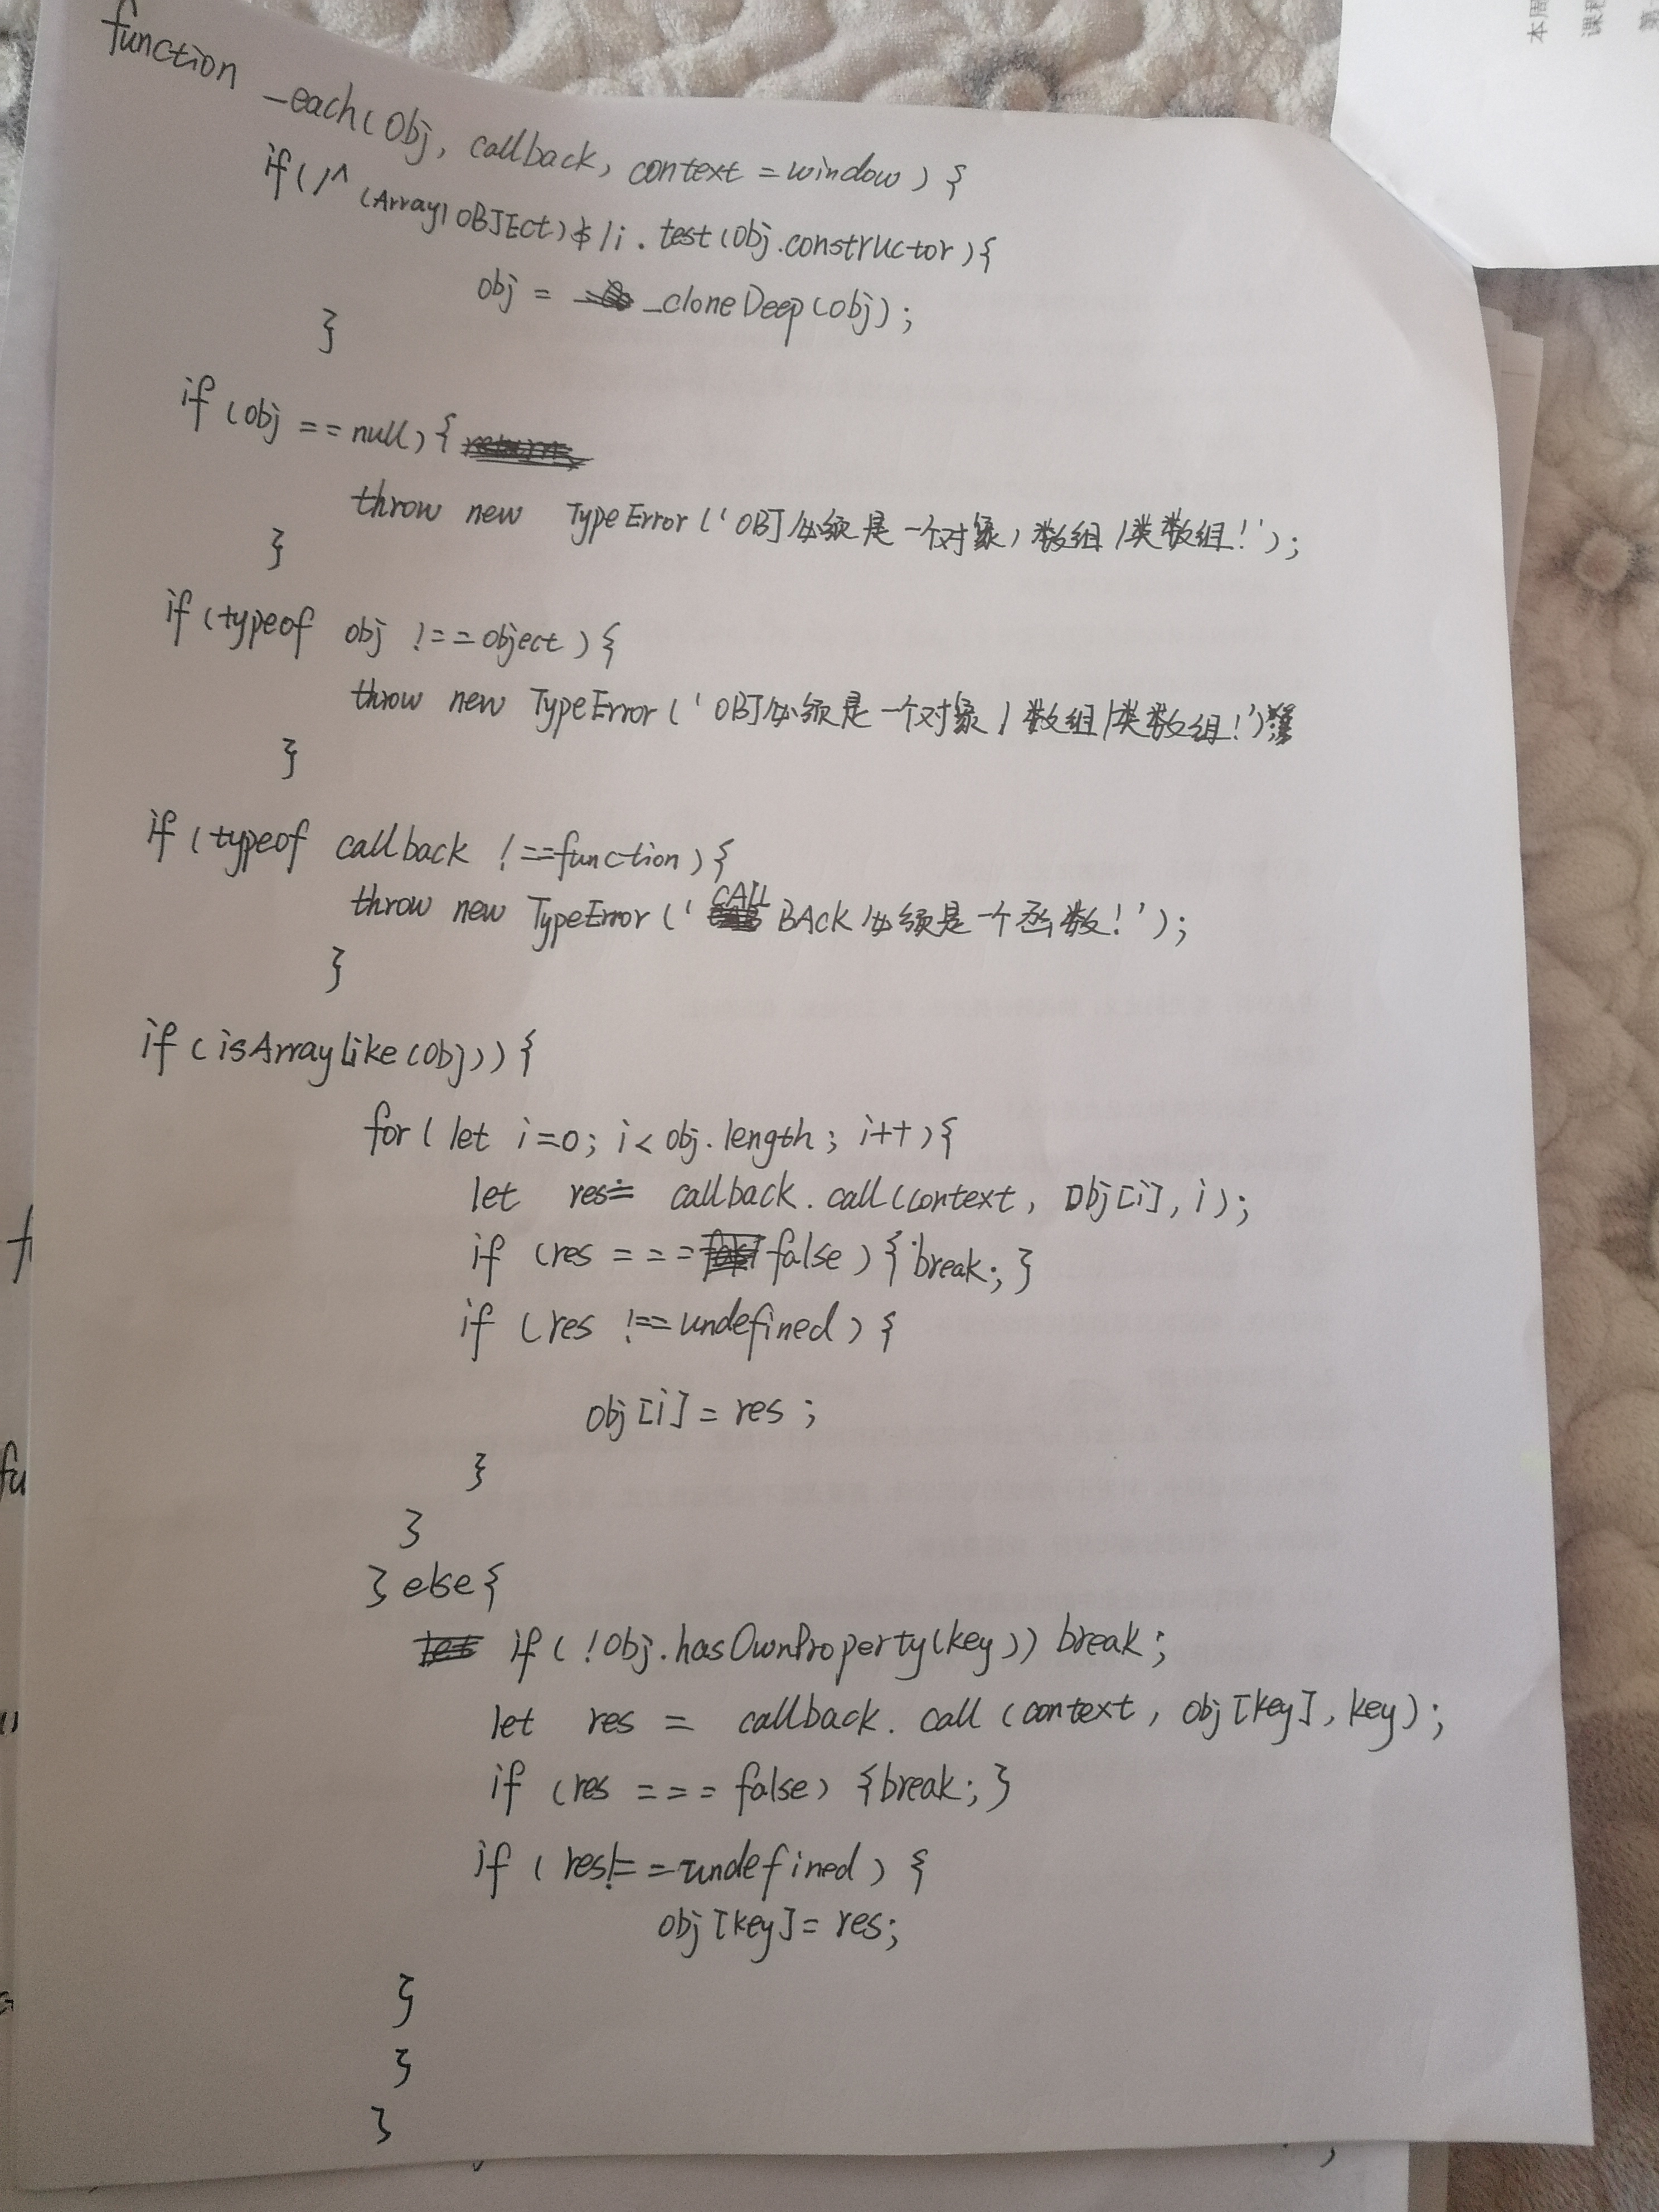 function _each(obj, callback, context = window) {
if(/^(Array|OBJEct)$/i.test(obj.constructor){
obj = _cloneDeep(obj);
}
if (obj == null) {
throw new TypeError('OBJ必须是一个对象/数组/类数组!');
}
if (typeof obj !== object) {
throw new TypeError('OBJ必须是一个对象/数组/类数组!');
}
if (typeof callback !== function) {
throw new TypeError('CALLBACK必须是一个函数!');
}
if (isArraylike(obj)) {
for(let i=0; i<obj.length; i++){
let res = callback.call(context, obj[i], i);
if (res === false) { break; }
if (res !== undefined) {
obj[i] = res;
}
}
} else {
if (!obj.hasOwnProperty(key)) break;
let res = callback.call(context, obj[key], key);
if (res === false) {break;}
if (res !== undefined) {
obj[key] = res;
}
}
}
本周
课程